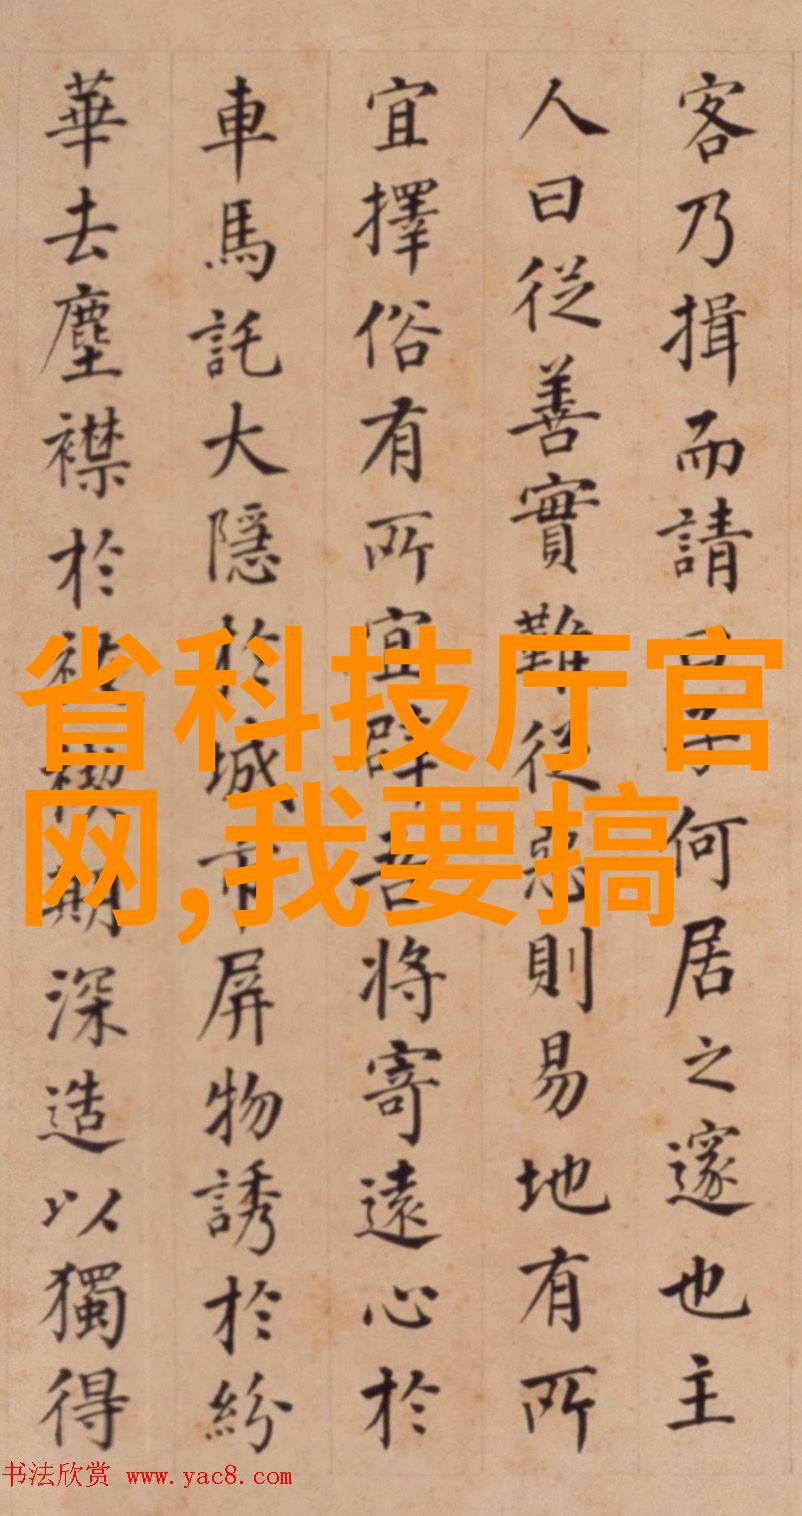 客乃揖而請曰子何居之邃也主
人曰從善實難從惡則易地有所
宜擇俗有所宜辟吾將寄遠心於
車馬託大隱於城市屏物誘於紛
華去塵襟於被禊期深造以獨得
省科技厅官
网,我要搞
书法欣赏 www.yac8.com